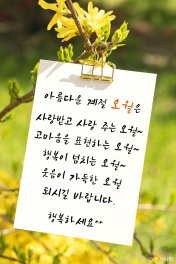 아름다운 계절 오월은
사랑받고 사랑 주는 오월~
고마움을 표현하는 오월~
행복이 넘치는 오월~
웃음이 가득한 오월
되시길 바랍니다.
행복하세요^^